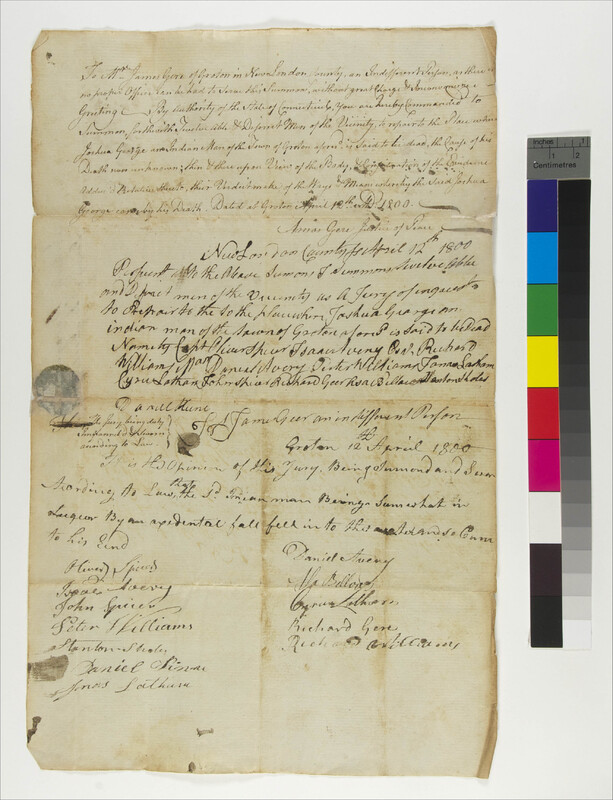 To Mr. James Gere of Groton in New London County, an Indifferent Person, as there is
no proper Officer can be had to Serve this Summon, without great Charge & Inconvenience
Greeting By Authority of the State of Connecticut, You are hereby Commanded to
Summon forthwith Twelve able & Discreet Men of the Vicinity, to repair to the Place where
Joshua George an Indian Man of the Town of Groton aforesd is Said to be dead, the Cause of his
Death now unknown; then & there upon View of the Body, & Consideration of the Evidence
their Verdict make of the Ways & Means whereby the Said Joshua
George came by his Death. Dated at Groton April 12th AD 1800.
Amos Gere Justice of Peace
New London County ss April 12th 1800
to the Above Summon I Summons twelve Able
and Discreet men of the Vicinity as A Jury of inquest
to Repair to the to the place where Joshua George an
indian man of the town of Groton aforesd is Said to be dead
Namely Capt Spicer Isaac Avery Esqr. Richard
Williams Daniel Avery Peter Williams James Latham
Cyrus Latham John Spicer Richard Geer Asa Bellows Stanton Sholes
Daniel
The Jury being duly
Impannel'd & Sworn
according to Law
James Geer an indifferent Person
Groton 12th April 1800
It is the Opinion of this Jury Being Sumond and Sworn
Acording to Law, that the Sd. Indian man Being Somewhat in
Lequer By an axedental fall fell in to the water and so Came
to his End
Daniel Avery
Oliver Spicer
Asa Bellows
Isaac Avery
Cyrus Latham
John Spicer
Richard Gere
Peter Williams
Richard Williams
Stanton Sholes
Daniel
Jonas Latham
Inches
1
2
Centimetres